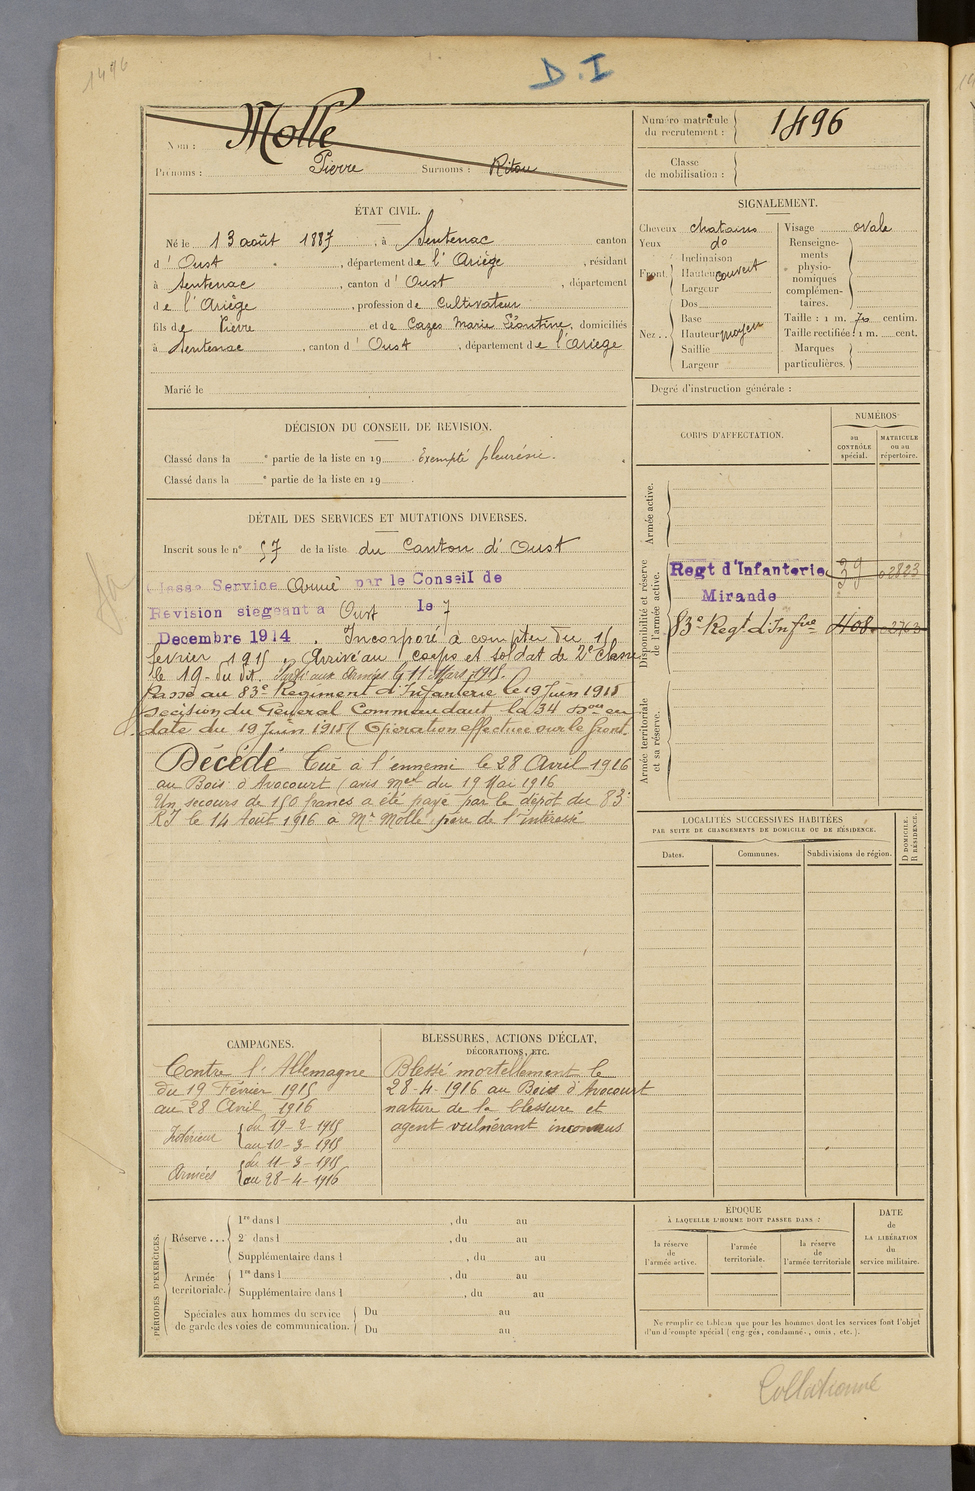 1496
D.I
Nom : Molle
Prénoms : Pierre Surnoms : Ritou
Numéro matricule du recrutement : 1496
Classe de mobilisation :
ÉTAT CIVIL.
Né le 13 août 1887, à Sentenac canton
d'Oust, département de l'Ariège, résidant
à Sentenac, canton d'Oust, département
de l'Ariège, profession de Cultivateur
fils de Pierre et de Cazes Marie Léontine, domiciliés
à Sentenac, canton d'Oust, département de l'Ariège
Marié le
SIGNALEMENT.
Cheveux chatains
Yeux do
Front. Inclinaison
Hauteur couvert
Largeur
Nez.. Dos
Base
Hauteur moyen
Saillie
Largeur
Visage ovale
Renseignements physionomiques complémentaires.
Taille : 1 m. 70 centim.
Taille rectifiée : 1 m. cent.
Marques particulières.
Degré d'instruction générale :
DÉCISION DU CONSEIL DE REVISION.
Classé dans la e partie de la liste en 19 Exempté pleurésie.
Classé dans la e partie de la liste en 19
DÉTAIL DES SERVICES ET MUTATIONS DIVERSES.
Inscrit sous le n° 57 de la liste du Canton d'Oust
Classé Service Armé par le Conseil de
Revision siegeant a Oust le 7
Decembre 1914. Incorporé à compter du 15
février 1915 Arrivé au corps et soldat de 2e Classe
le 19 du dit. Parti aux Armées le 11 Mars 1915.
Passé au 83e Regiment d'Infanterie le 19 Juin 1915
Decision du General Commandant la 34 Don en
date du 19 Juin 1915 (Operation effectuée sur le front.
Décédé Tué à l'ennemi le 28 Avril 1916
au Bois d'Avocourt (avis mel du 19 Mai 1916
Un secours de 150 francs a été payé par le dépôt du 83e
RI le 14 Août 1916 à Mr Molle père de l'intéressé
CORPS D'AFFECTATION.
NUMÉROS
au CONTRÔLE spécial.
MATRICULE ou au répertoire.
Armée active.
Disponibilité et réserve de l'armée active.
Regt d'Infanterie 02823
Mirande
83e Regt d'Infrie 2763
Armée territoriale et sa réserve.
LOCALITÉS SUCCESSIVES HABITÉES
PAR SUITE DE CHANGEMENTS DE DOMICILE OU DE RÉSIDENCE.
Dates.
Communes.
Subdivisions de région.
D DOMICILE.
R RÉSIDENCE.
CAMPAGNES.
Contre l'Allemagne
du 19 Février 1915
au 28 Avril 1916
Intérieur du 19-2-1915
au 10-3-1915
Armées du 11-3-1915
au 28-4-1916
BLESSURES, ACTIONS D'ÉCLAT,
DÉCORATIONS, ETC.
Blessé mortellement le
28-4-1916 au Bois d'Avocourt
nature de la blessure et
agent vulnérant inconnus
PÉRIODES D'EXERCICES.
Réserve... 1re dans l , du au
2e dans l , du au
Supplémentaire dans l , du au
Armée territoriale. 1re dans l , du au
Supplémentaire dans l , du au
Spéciales aux hommes du service de garde des voies de communication. Du au
Du au
ÉPOQUE
À LAQUELLE L'HOMME DOIT PASSER DANS :
la réserve de l'armée active.
l'armée territoriale.
la réserve de l'armée territoriale
DATE DE LA LIBÉRATION du service militaire.
Ne remplir ce tableau que pour les hommes dont les services font l'objet
d'un décompte spécial (engagés, condamnés, omis, etc.).
Collationné